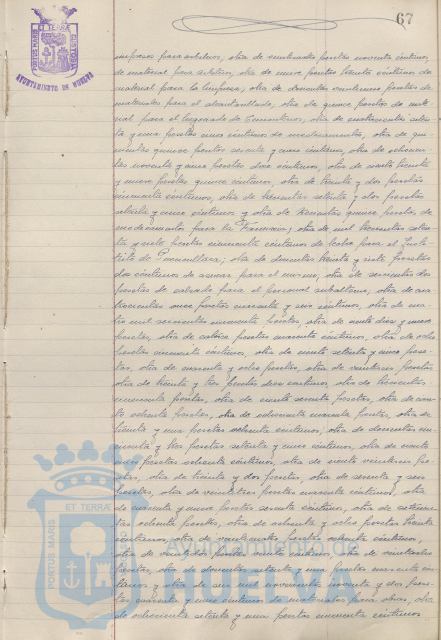 67
PORTUS MARIS ET TERRÆ CUSTODIA
AYUNTAMIENTO DE HUELVA
impresos para arbitrios, otra de veintinueve pesetas noventa céntimos,
de material para arbitrios, otra de nueve pesetas treinta céntimos de
material para la limpieza, otra de doscientas veintiuna pesetas de
materiales para el alcantarillado, otra de quince pesetas de mate
rial para el negociado de Cementerios, otra de
ta y una pesetas cinco céntimos de medicamentos, otra de qui-
nientas quince pesetas setenta y cinco céntimos, otra de ochocien
tas noventa y cinco pesetas doce céntimos, otra de
y nueve pesetas quince céntimos, otra de treinta y dos pesetas
cincuenta céntimos, otra de trescientas setenta y dos pesetas
setenta y cinco céntimos y otra de trescientas quince pesetas, de
medicamentos para la Farmacia; otra de mil trescientas
ta y siete pesetas cincuenta céntimos de leche para el Insti
tuto de Puericultura; otra de doscientas treinta y siete pesetas
dos céntimos de azúcar para el mismo, otra de
pesetas de calzado para el personal subalterno, otra de
trocientas once pesetas cuarenta y seis céntimos, otra de cua
tro mil seiscientas cincuenta pesetas, otra de
pesetas, otra de catorce pesetas cuarenta céntimos, otra de ocho
pesetas cincuenta céntimos, otra de ciento setenta y cinco pese-
tas, otra de cuarenta y ocho pesetas, otra de veintiseis pesetas
otra de treinta y tres pesetas doce céntimos, otra de trescientas
cincuenta pesetas, otra de ciento sesenta pesetas, otra de cien-
to ochenta pesetas, otra de ochocientas cuarenta pesetas, otra de
treinta y una pesetas ochenta céntimos, otra de doscientas cin-
cuenta y tres pesetas setenta y cinco céntimos, otra de
cinco pesetas ochenta céntimos, otra de ciento veintiuna pese
tas, otra de treinta y dos pesetas, otra de sesenta y seis
pesetas, otra de veintitres pesetas cuarenta céntimos, otra
de cuarenta y cinco pesetas sesenta céntimos, otra de
ochenta pesetas, otra de ochenta y ocho pesetas treinta
céntimos, otra de pesetas ochenta céntimos,
otra de veintidos pesetas veinte céntimos, otra de
pesetas, otra de doscientas setenta y una pesetas cuarenta cén-
timos, y otra de seis mil novecientas noventa y dos pese-
tas cuarenta y cinco céntimos de materiales para obras, otra
de ochocientas setenta y una pesetas cincuenta céntimos
PORTUS MARIS ET TERRÆ CUSTODIA
Ayuntamiento de
HUELVA